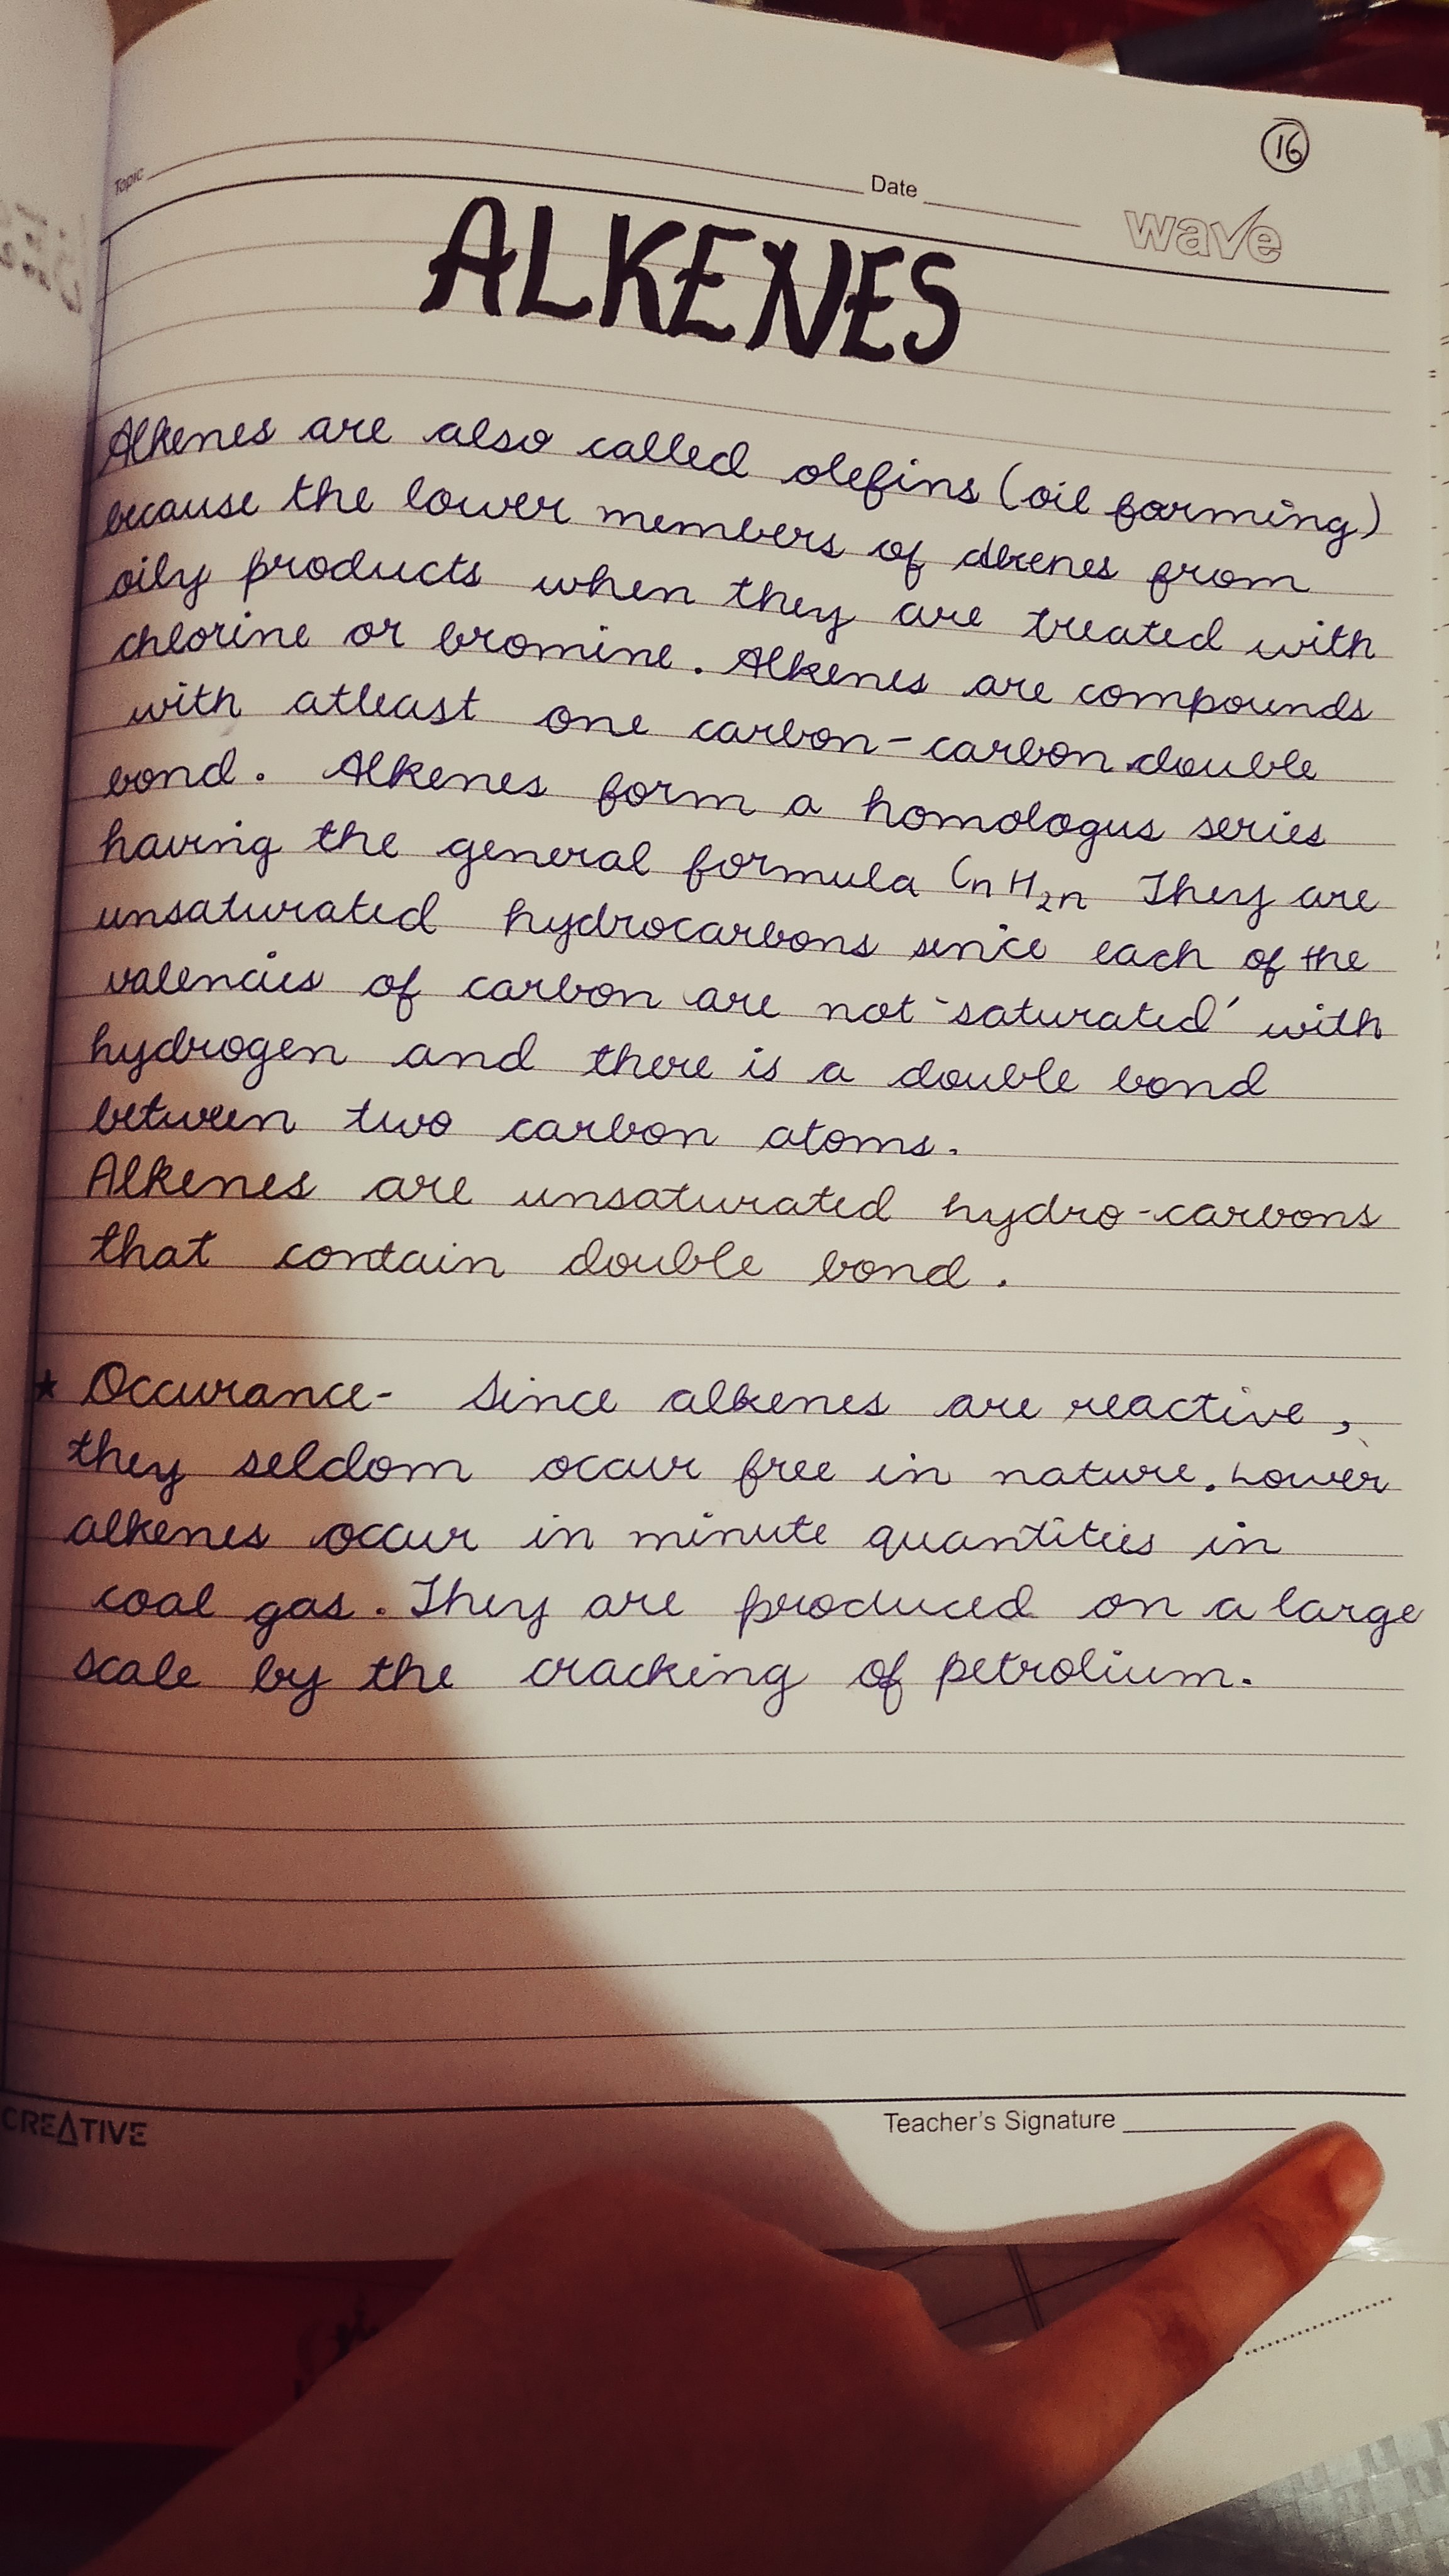 16
Topic
Date
wave
ALKENES
Alkenes are also called olefins (oil forming)
because the lower members of alkenes from
oily products when they are treated with
chlorine or bromine. Alkenes are compounds
with atleast one carbon-carbon double
bond. Alkenes form a homologus series
having the general formula CnH2n They are
unsaturated hydrocarbons since each of the
valencies of carbon are not 'saturated' with
hydrogen and there is a double bond
between two carbon atoms.
Alkenes are unsaturated hydro-carbons
that contain double bond.
★ Occurance- Since alkenes are reactive,
they seldom occur free in nature. Lower
alkenes occur in minute quantities in
coal gas. They are produced on a large
scale by the cracking of petrolium.
CREATIVE
Teacher's Signature